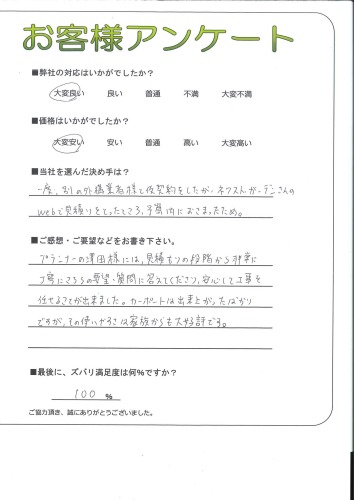 お客様アンケート
■弊社の対応はいかがでしたか？
大変良い 良い 普通 不満 大変不満
■価格はいかがでしたか？
大変安い 安い 普通 高い 大変高い
■当社を選んだ決め手は？
一度、別の外構業者様と仮契約をしたが、ネクストガーデンさんの
webで見積りをとったところ、予算内におさまったため。
■ご感想・ご要望などをお書き下さい。
プランナーの澤田様には、見積もりの段階から非常に
丁寧にこちらの要望、質問に答えてくださり、安心して工事を
任せることが出来ました。カーポートは出来上がったばかり
ですが、その使いやすさは家族からも大好評です。
■最後に、ズバリ満足度は何%ですか？
100 %
ご協力頂き、誠にありがとうございました。